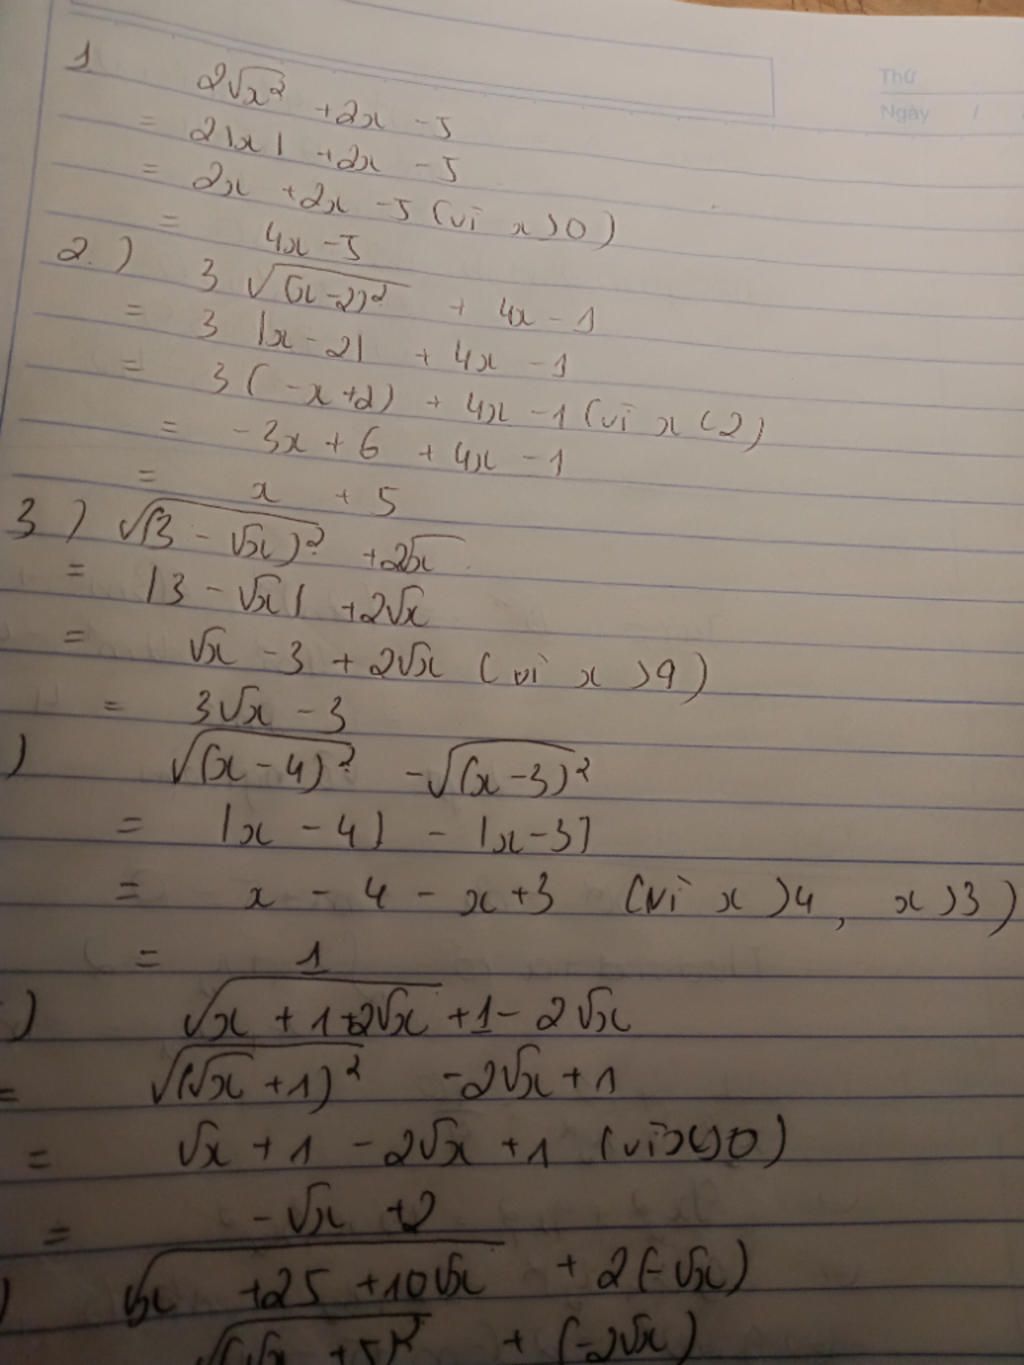 Thứ
Ngày /
1 2√x² + 2x - 5
= 2|x| + 2x - 5
= 2x + 2x - 5 (vì x > 0)
= 4x - 5
2.) 3 √(x - 2)² + 4x - 1
= 3 |x - 2| + 4x - 1
= 3 (-x + 2) + 4x - 1 (vì x < 2)
= -3x + 6 + 4x - 1
= x + 5
3) √(3 - √x)² + 2√x
= |3 - √x| + 2√x
= √x - 3 + 2√x (vì x > 9)
= 3√x - 3
) √(x - 4)² - √(x - 3)²
= |x - 4| - |x - 3|
= x - 4 - x + 3 (vì x > 4, x > 3)
= 1
) √x + 1 + 2√x + 1 - 2√x
= √(√x + 1)² - 2√x + 1
= √x + 1 - 2√x + 1 (vì x > 0)
= -√x + 2
) √x + 25 + 10√x + 2(-√x)
√(√x + 5)² + (-2√x)